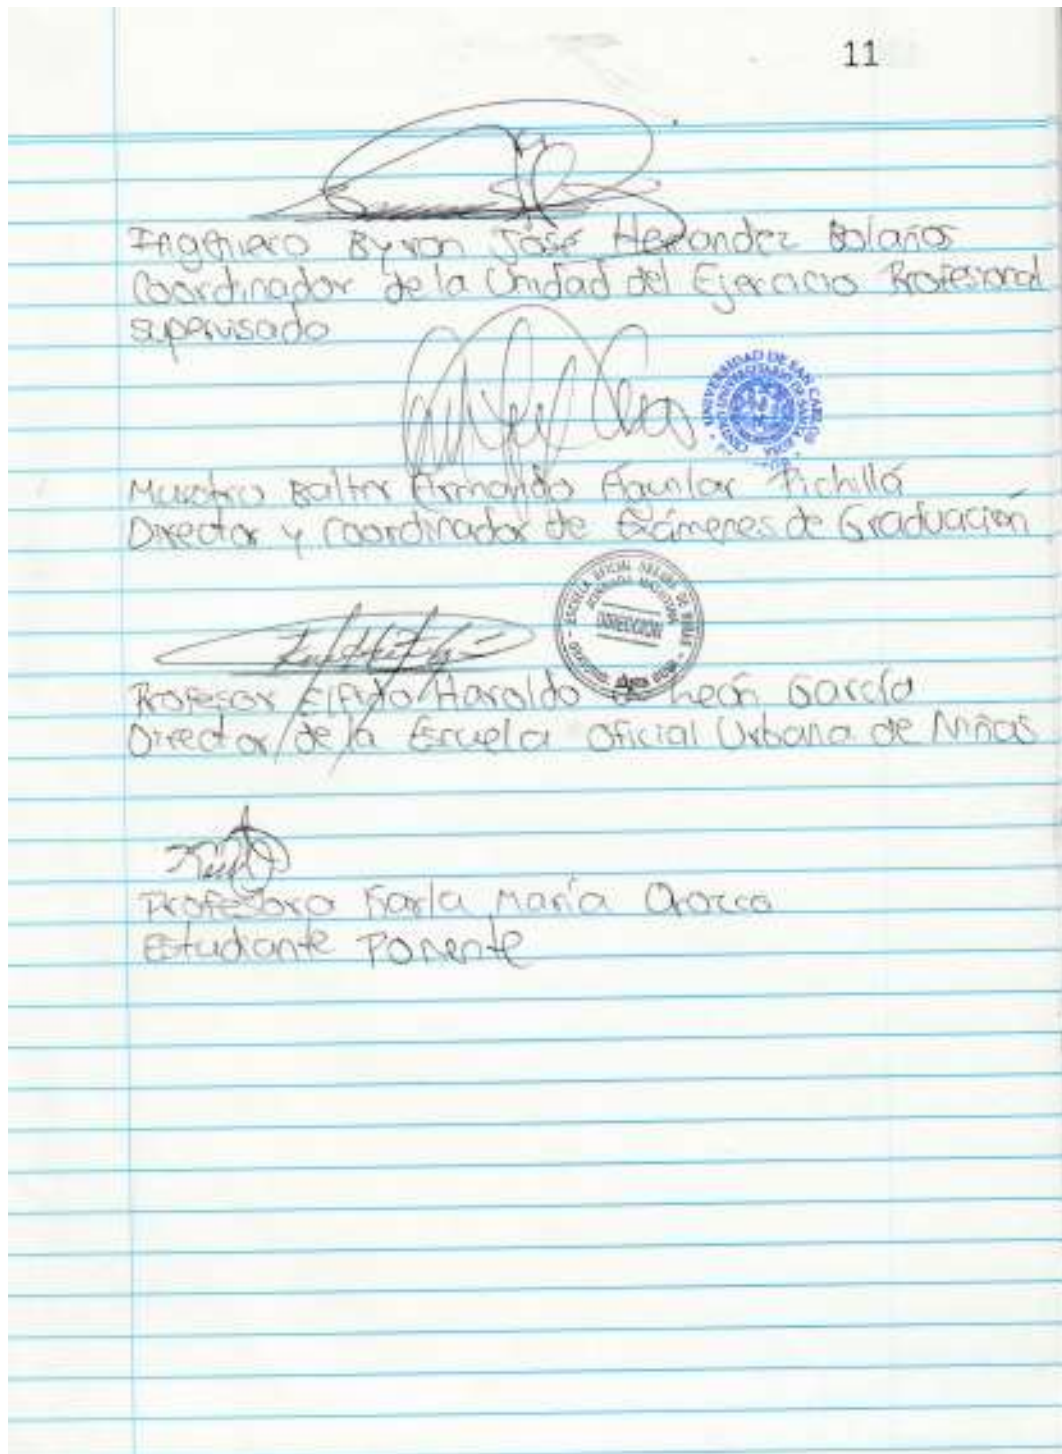 11
Ingeniero Byron José Hernandez Bolaños
Coordinador de la Unidad del Ejercicio Profesional
supervisado
UNIVERSIDAD DE SAN CARLOS
CENTRO UNIVERSITARIO DE SANTA ROSA
Maestro Armando Aguilar Pichillá
Director y Coordinador de Exámenes de Graduación
ESCUELA OFICIAL URBANA DE NIÑAS
JORNADA MATUTINA
DIRECCION
Profesor Haroldo León García
Director de la Escuela Oficial Urbana de Niñas
Profesora Karla María Orozco
Estudiante Ponente